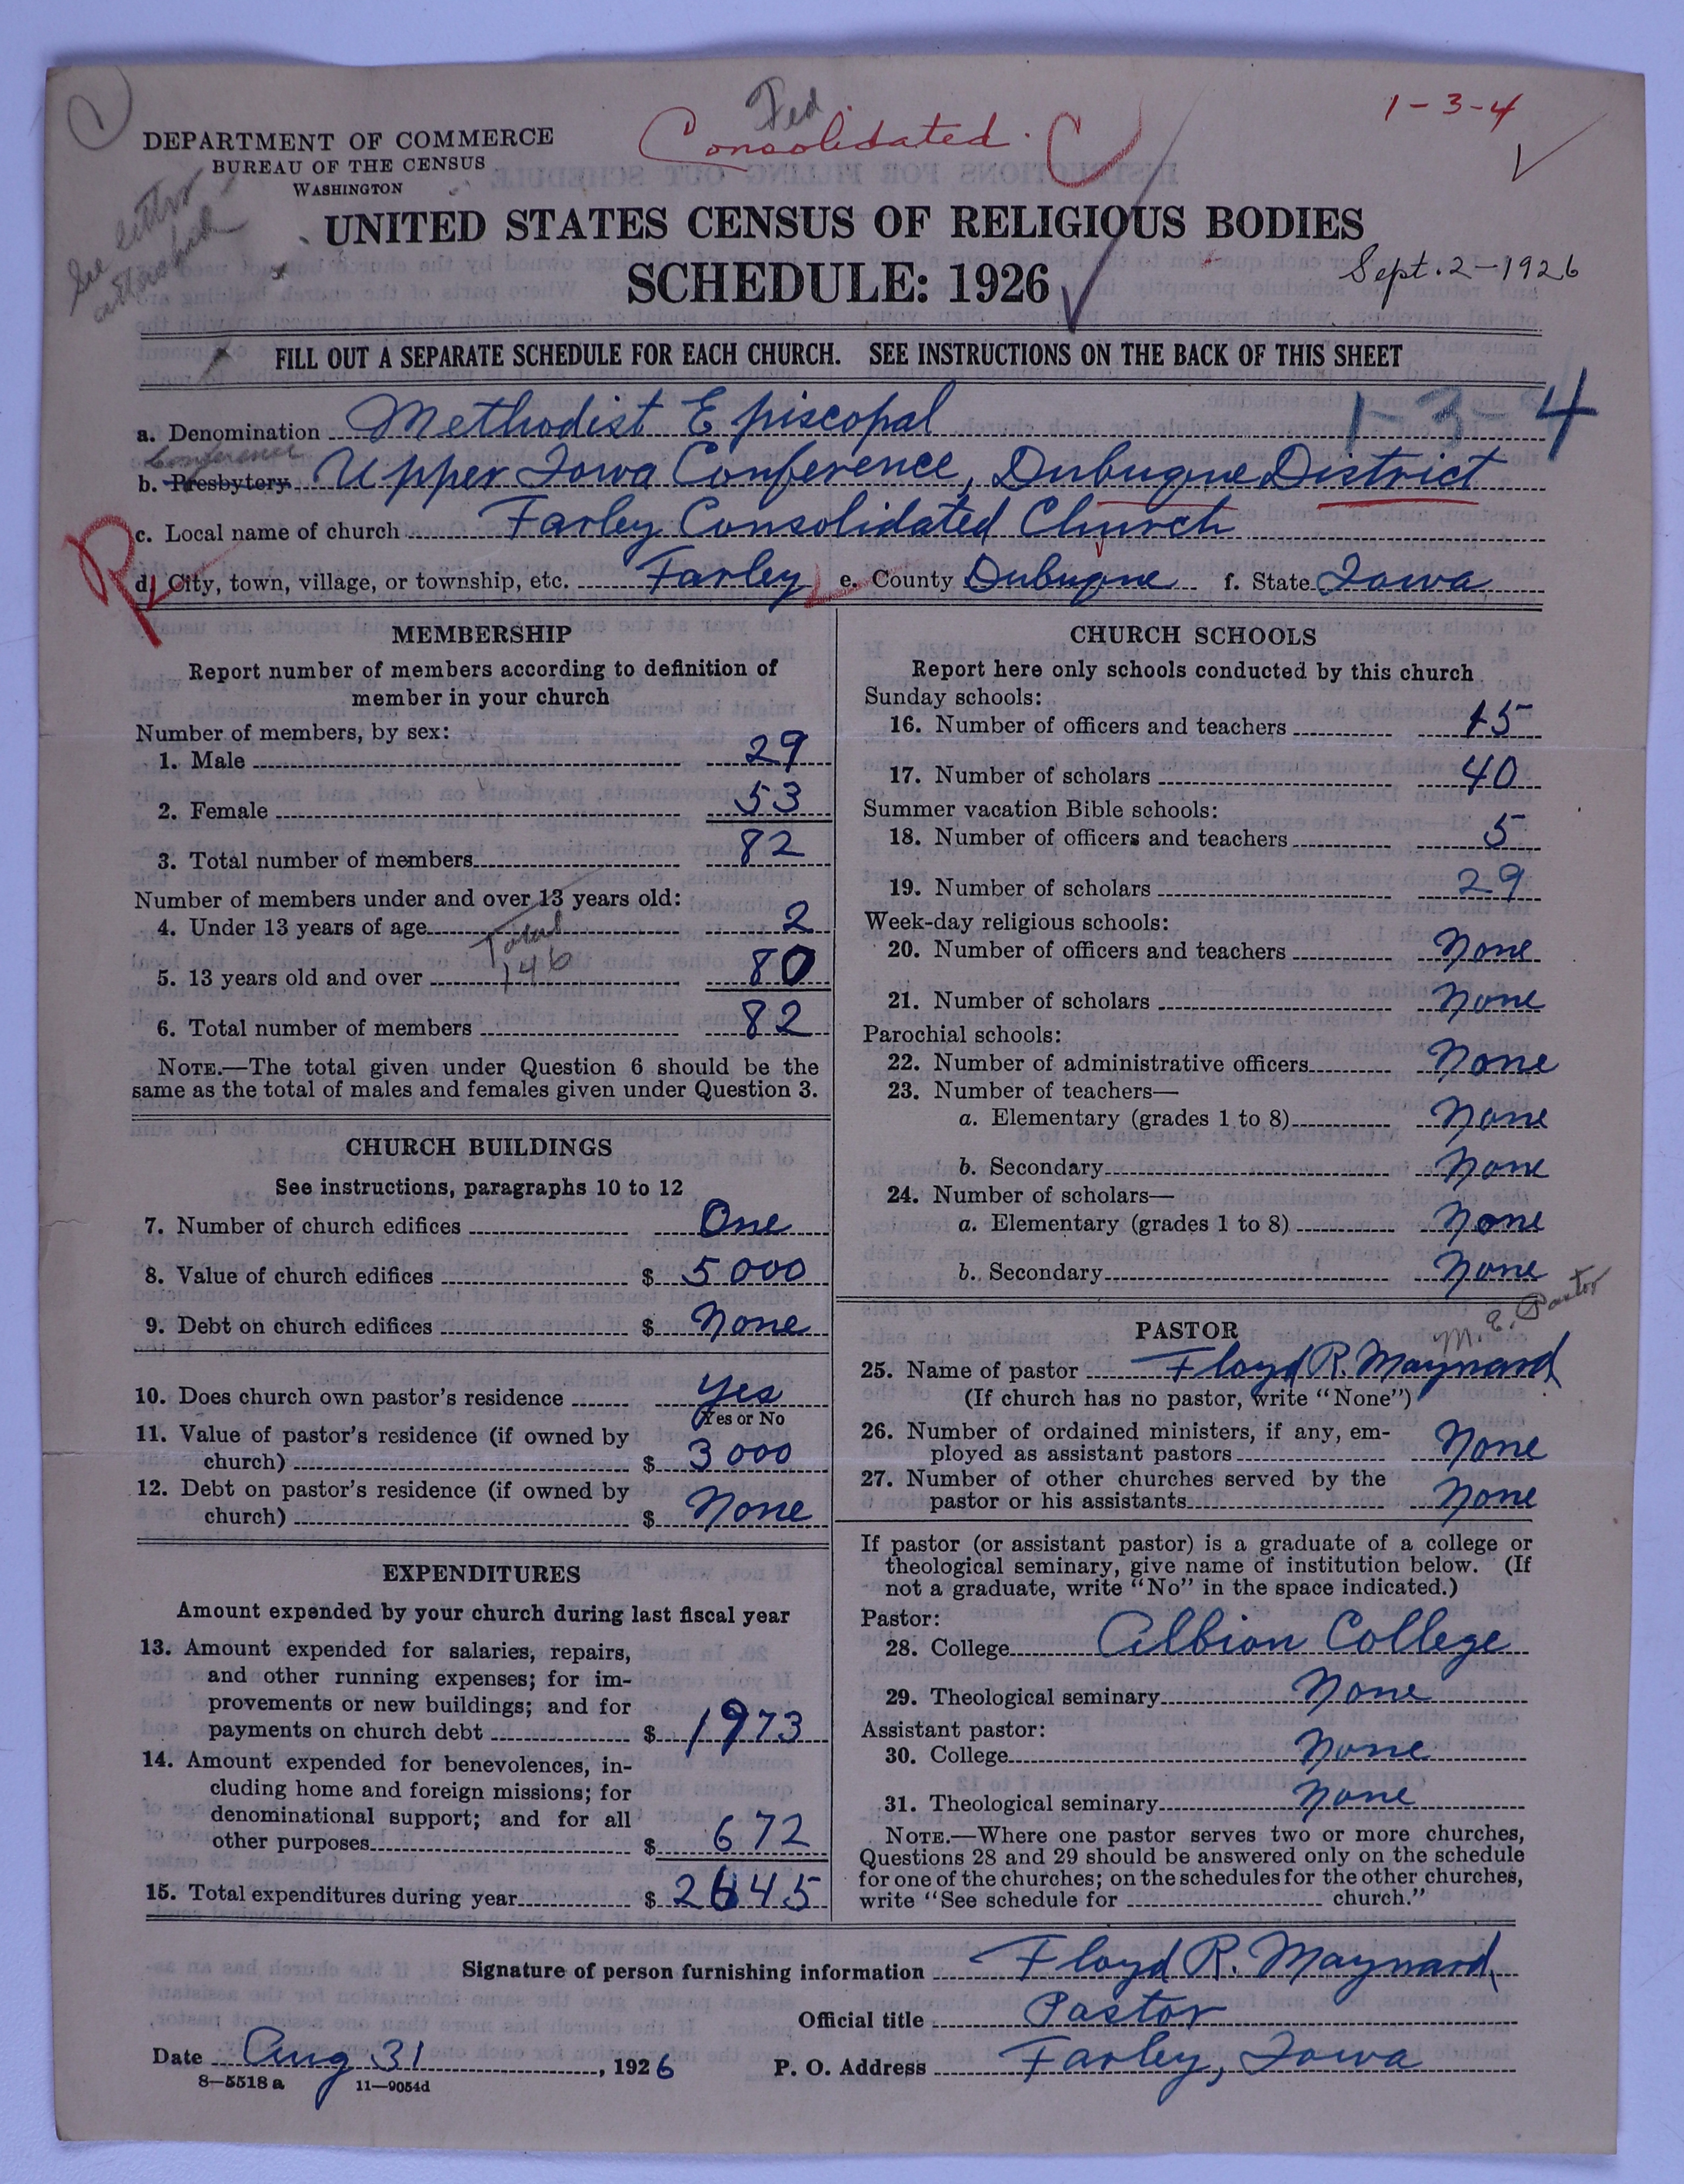 Fed
1-3-4
Consolidated.
DEPARTMENT OF COMMERCE
BUREAU OF THE CENSUS
WASHINGTON
See letter
attached
UNITED STATES CENSUS OF RELIGIOUS BODIES
SCHEDULE: 1926
Sept. 2-1926
FILL OUT A SEPARATE SCHEDULE FOR EACH CHURCH. SEE INSTRUCTIONS ON THE BACK OF THIS SHEET
1-3-4
a. Denomination Methodist Episcopal
Conference
b. Presbytery Upper Iowa Conference, Dubuque District
c. Local name of church Farley Consolidated Church
d. City, town, village, or township, etc. Farley e. County Dubuque f. State Iowa
MEMBERSHIP
Report number of members according to definition of
member in your church
Number of members, by sex:
1. Male 29
2. Female 53
3. Total number of members 82
Number of members under and over 13 years old:
4. Under 13 years of age 2
Total
146
5. 13 years old and over 80
6. Total number of members 82
NOTE.—The total given under Question 6 should be the
same as the total of males and females given under Question 3.
CHURCH BUILDINGS
See instructions, paragraphs 10 to 12
7. Number of church edifices One
8. Value of church edifices $ 5000
9. Debt on church edifices $ None
10. Does church own pastor's residence Yes
Yes or No
11. Value of pastor's residence (if owned by
church) $ 3000
12. Debt on pastor's residence (if owned by
church) $ None
EXPENDITURES
Amount expended by your church during last fiscal year
13. Amount expended for salaries, repairs,
and other running expenses; for im-
provements or new buildings; and for
payments on church debt $ 1973
14. Amount expended for benevolences, in-
cluding home and foreign missions; for
denominational support; and for all
other purposes $ 672
15. Total expenditures during year $ 2645
CHURCH SCHOOLS
Report here only schools conducted by this church
Sunday schools:
16. Number of officers and teachers 15
17. Number of scholars 40
Summer vacation Bible schools:
18. Number of officers and teachers 5
19. Number of scholars 29
Week-day religious schools:
20. Number of officers and teachers None
21. Number of scholars None
Parochial schools:
22. Number of administrative officers None
23. Number of teachers—
a. Elementary (grades 1 to 8) None
b. Secondary None
24. Number of scholars—
a. Elementary (grades 1 to 8) None
b. Secondary None
PASTOR
M. E. Pastor
25. Name of pastor Floyd R. Maynard
(If church has no pastor, write "None")
26. Number of ordained ministers, if any, em-
ployed as assistant pastors None
27. Number of other churches served by the
pastor or his assistants None
If pastor (or assistant pastor) is a graduate of a college or
theological seminary, give name of institution below. (If
not a graduate, write "No" in the space indicated.)
Pastor:
28. College Albion College
29. Theological seminary None
Assistant pastor:
30. College None
31. Theological seminary None
NOTE.—Where one pastor serves two or more churches,
Questions 28 and 29 should be answered only on the schedule
for one of the churches; on the schedules for the other churches,
write "See schedule for church."
Signature of person furnishing information Floyd R. Maynard
Official title Pastor
Date Aug 31, 1926 P. O. Address Farley, Iowa
8—5518a 11—9054d